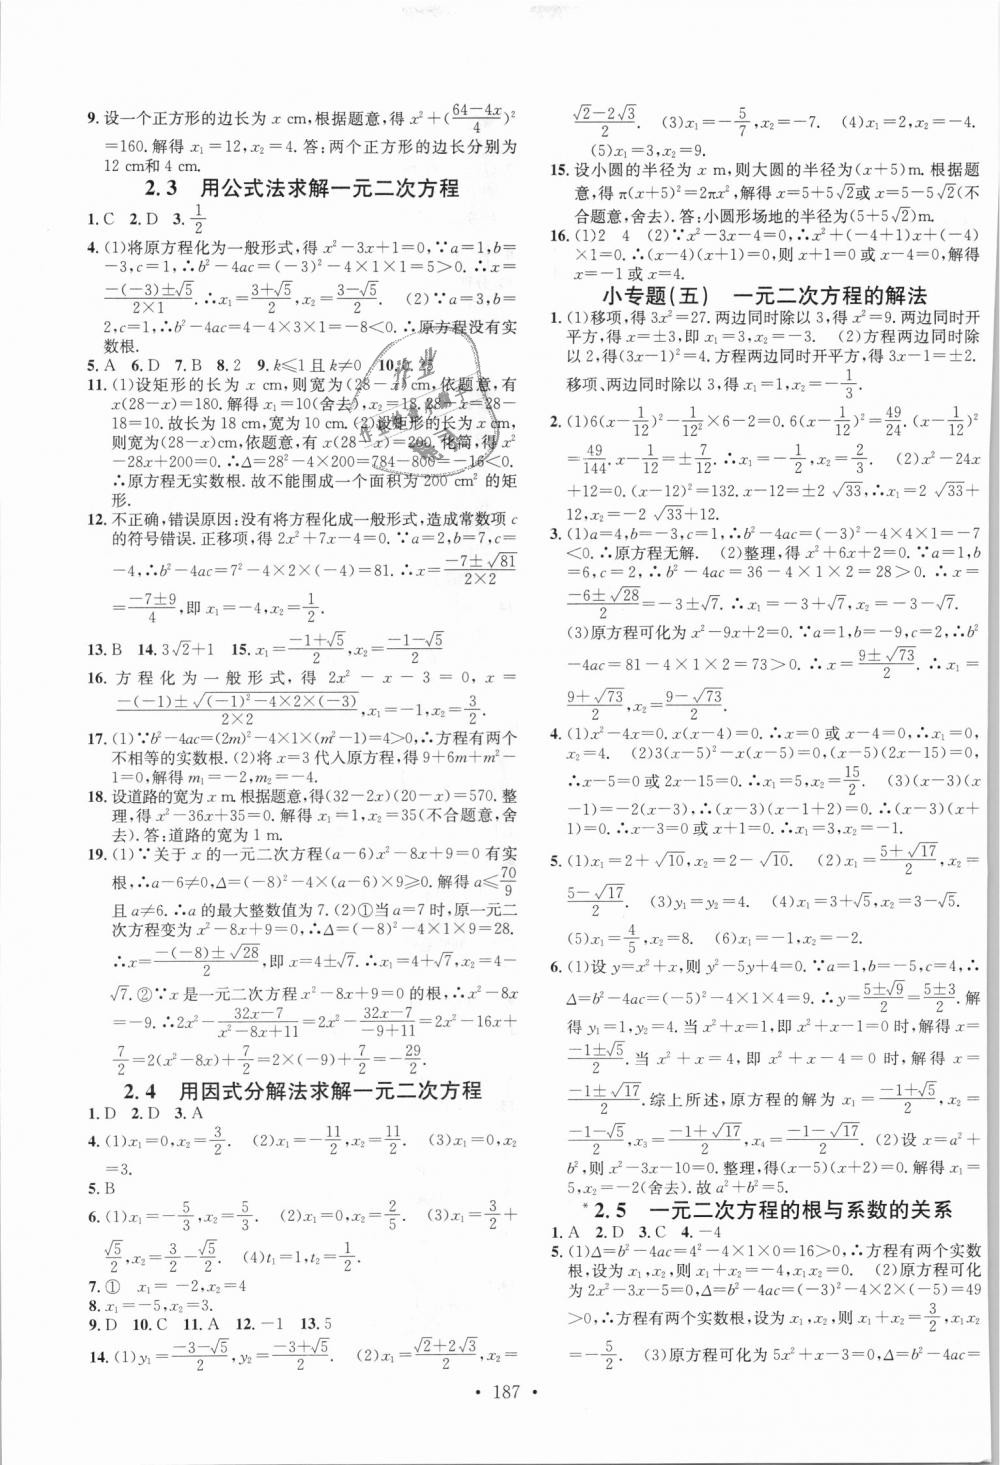 9. 设一个正方形的边长为 x cm,根据题意,得 x²+((64-4x)/4)²
=160. 解得 x₁=12,x₂=4. 答:两个正方形的边长分别为
12 cm和 4 cm.
2.3 用公式法求解一元二次方程
1. C 2. D 3. 1/2
4. (1)将原方程化为一般形式,得 x²-3x+1=0,∵a=1,b=
-3,c=1,∴b²-4ac=(-3)²-4×1×1=5>0. ∴x=
(-(-3)±√5)/(2×1). ∴x₁=(3+√5)/2,x₂=(3-√5)/2. (2)∵a=3,b=
2,c=1,∴b²-4ac=4-4×3×1=-8<0. ∴原方程没有实
数根.
5. A 6. D 7. B 8. 2 9. k≤1 且 k≠0 10. 25
11. (1)设矩形的长为 x cm,则宽为(28-x)cm,依题意,有
x(28-x)=180. 解得 x₁=10(舍去),x₂=18. 28-x=28-
18=10. 故长为 18 cm,宽为 10 cm. (2)设矩形的长为 x cm,
则宽为(28-x)cm,依题意,有 x(28-x)=200,化简,得 x²-
28x+200=0. ∴Δ=28²-4×200=784-800=-16<0.
∴原方程无实数根. 故不能围成一个面积为 200 cm² 的矩
形.
12. 不正确,错误原因:没有将方程化成一般形式,造成常数项 c
的符号错误. 正移项,得 2x²+7x-4=0. ∵a=2,b=7,c=
-4,∴b²-4ac=7²-4×2×(-4)=81. ∴x=(-7±√81)/(2×2)
=(-7±9)/4,即 x₁=-4,x₂=1/2.
13. B 14. 3√2+1 15. x₁=(-1+√5)/2,x₂=(-1-√5)/2
16. 方程化为一般形式,得 2x²-x-3=0,x=
(-(-1)±√((-1)²-4×2×(-3)))/(2×2),x₁=-1,x₂=3/2.
17. (1)∵b²-4ac=(2m)²-4×1×(m²-1)=4>0,∴方程有两个
不相等的实数根. (2)将 x=3 代入原方程,得 9+6m+m²-
1=0,解得 m₁=-2,m₂=-4.
18. 设道路的宽为 x m. 根据题意,得(32-2x)(20-x)=570. 整
理,得 x²-36x+35=0. 解得 x₁=1,x₂=35(不合题意,舍
去). 答:道路的宽为 1 m.
19. (1)∵关于 x 的一元二次方程(a-6)x²-8x+9=0 有实
根,∴a-6≠0,Δ=(-8)²-4×(a-6)×9≥0. 解得 a≤70/9
且 a≠6. ∴a 的最大整数值为 7. (2)①当 a=7 时,原一元二
次方程变为 x²-8x+9=0. ∵Δ=(-8)²-4×1×9=28.
∴x=(-(-8)±√28)/2,即 x=4±√7. ∴x₁=4+√7,x₂=4-
√7. ②∵x 是一元二次方程 x²-8x+9=0 的根,∴x²-8x
=-9. ∴2x²-(32x-7)/(x²-8x+11)=2x²-(32x-7)/(-9+11)=2x²-16x+
7/2=2(x²-8x)+7/2=2×(-9)+7/2=-29/2.
2.4 用因式分解法求解一元二次方程
1. D 2. D 3. A
4. (1)x₁=0,x₂=3/2. (2)x₁=-11/2,x₂=11/2. (3)x₁=0,x₂
=3.
5. B
6. (1)x₁=-5/3,x₂=5/3. (2)x₁=0,x₂=2/5. (3)x₁=3/2+
√5/2,x₂=3/2-√5/2. (4)t₁=1,t₂=1/2.
7. ① x₁=-2,x₂=4
8. x₁=-5,x₂=3.
9. D 10. C 11. A 12. -1 13. 5
14. (1)y₁=(-3-√5)/2,y₂=(-3+√5)/2. (2)x₁=(√2+2√3)/2,x₂=
(√2-2√3)/2. (3)x₁=-5/7,x₂=-7. (4)x₁=2,x₂=-4.
(5)x₁=3,x₂=9.
15. 设小圆的半径为 x m,则大圆的半径为(x+5)m. 根据题
意,得 π(x+5)²=2πx²,解得 x=5+5√2或 x=5-5√2(不
合题意,舍去). 答:小圆形场地的半径为(5+5√2)m.
16. (1)2 4 (2)∵x²-3x-4=0,∴x²+(-4+1)x+(-4)
×1=0. ∴(x-4)(x+1)=0,则 x+1=0 或 x-4=0,解得
x=-1 或 x=4.
小专题(五) 一元二次方程的解法
1. (1)移项,得 3x²=27. 两边同时除以 3,得 x²=9. 两边同时开
平方,得 x=±3,即 x₁=3,x₂=-3. (2)方程两边同时除以
4,得(3x-1)²=4. 方程两边同时开平方,得 3x-1=±2.
移项、两边同时除以 3,得 x₁=1,x₂=-1/3.
2. (1)6(x-1/12)²-1/12×6-2=0. 6(x-1/12)²=49/24. (x-1/12)²
=49/144. x-1/12=±7/12. ∴x₁=-1/2,x₂=2/3. (2)x²-24x
+12=0. (x-12)²=132. x-12=±2√33,∴x₁=2√33+
12,x₂=-2√33+12.
3. (1)a=4,b=-3,c=1,∴b²-4ac=(-3)²-4×4×1=-7
<0. ∴原方程无解. (2)整理,得 x²+6x+2=0. ∵a=1,b
=6,c=2,∴b²-4ac=36-4×1×2=28>0,∴x=
(-6±√28)/2=-3±√7. ∴x₁=-3+√7,x₂=-3-√7.
(3)原方程可化为 x²-9x+2=0. ∵a=1,b=-9,c=2,∴b²
-4ac=81-4×1×2=73>0. ∴x=(9±√73)/2. ∴x₁=
(9+√73)/2,x₂=(9-√73)/2.
4. (1)x²-4x=0. x(x-4)=0. ∴x=0 或 x-4=0,∴x₁=0,
x₂=4. (2)3(x-5)²-x(x-5)=0,(x-5)(2x-15)=0,
∴x-5=0 或 2x-15=0,∴x₁=5,x₂=15/2. (3)(x-3)(x
-1)-2(x-3)=0,∴(x-3)(x-1-2)=0. ∴(x-3)(x+
1)=0. ∴x-3=0 或 x+1=0,∴x₁=3,x₂=-1.
5. (1)x₁=2+√10,x₂=2-√10. (2)x₁=(5+√17)/2,x₂=
(5-√17)/2. (3)y₁=y₂=4. (4)x₁=3+√5,x₂=3-√5.
(5)x₁=4/5,x₂=8. (6)x₁=-1,x₂=-2.
6. (1)设 y=x²+x,则 y²-5y+4=0. ∵a=1,b=-5,c=4,∴
Δ=b²-4ac=(-5)²-4×1×4=9. ∴y=(5±√9)/2=(5±3)/2. 解
得 y₁=1,y₂=4. 当 x²+x=1,即 x²+x-1=0 时,解得 x=
(-1±√5)/2. 当 x²+x=4,即 x²+x-4=0 时,解得 x=
(-1±√17)/2. 综上所述,原方程的解为 x₁=(-1+√5)/2,x₂=
(-1-√5)/2,x₃=(-1+√17)/2,x₄=(-1-√17)/2. (2)设 x=a²+
b²,则 x²-3x-10=0. 整理,得(x-5)(x+2)=0. 解得 x₁=
5,x₂=-2(舍去). 故 a²+b²=5.
*2.5 一元二次方程的根与系数的关系
1. A 2. D 3. C 4. -4
5. (1)Δ=b²-4ac=4²-4×1×0=16>0,∴方程有两个实数
根,设为 x₁,x₂,则 x₁+x₂=-4,x₁x₂=0. (2)原方程可化
为 2x²-3x-5=0,Δ=b²-4ac=(-3)²-4×2×(-5)=49
>0,∴方程有两个实数根,设为 x₁,x₂,则 x₁+x₂=3/2,x₁x₂
=-5/2. (3)原方程可化为 5x²+x-3=0,Δ=b²-4ac=
• 187 •